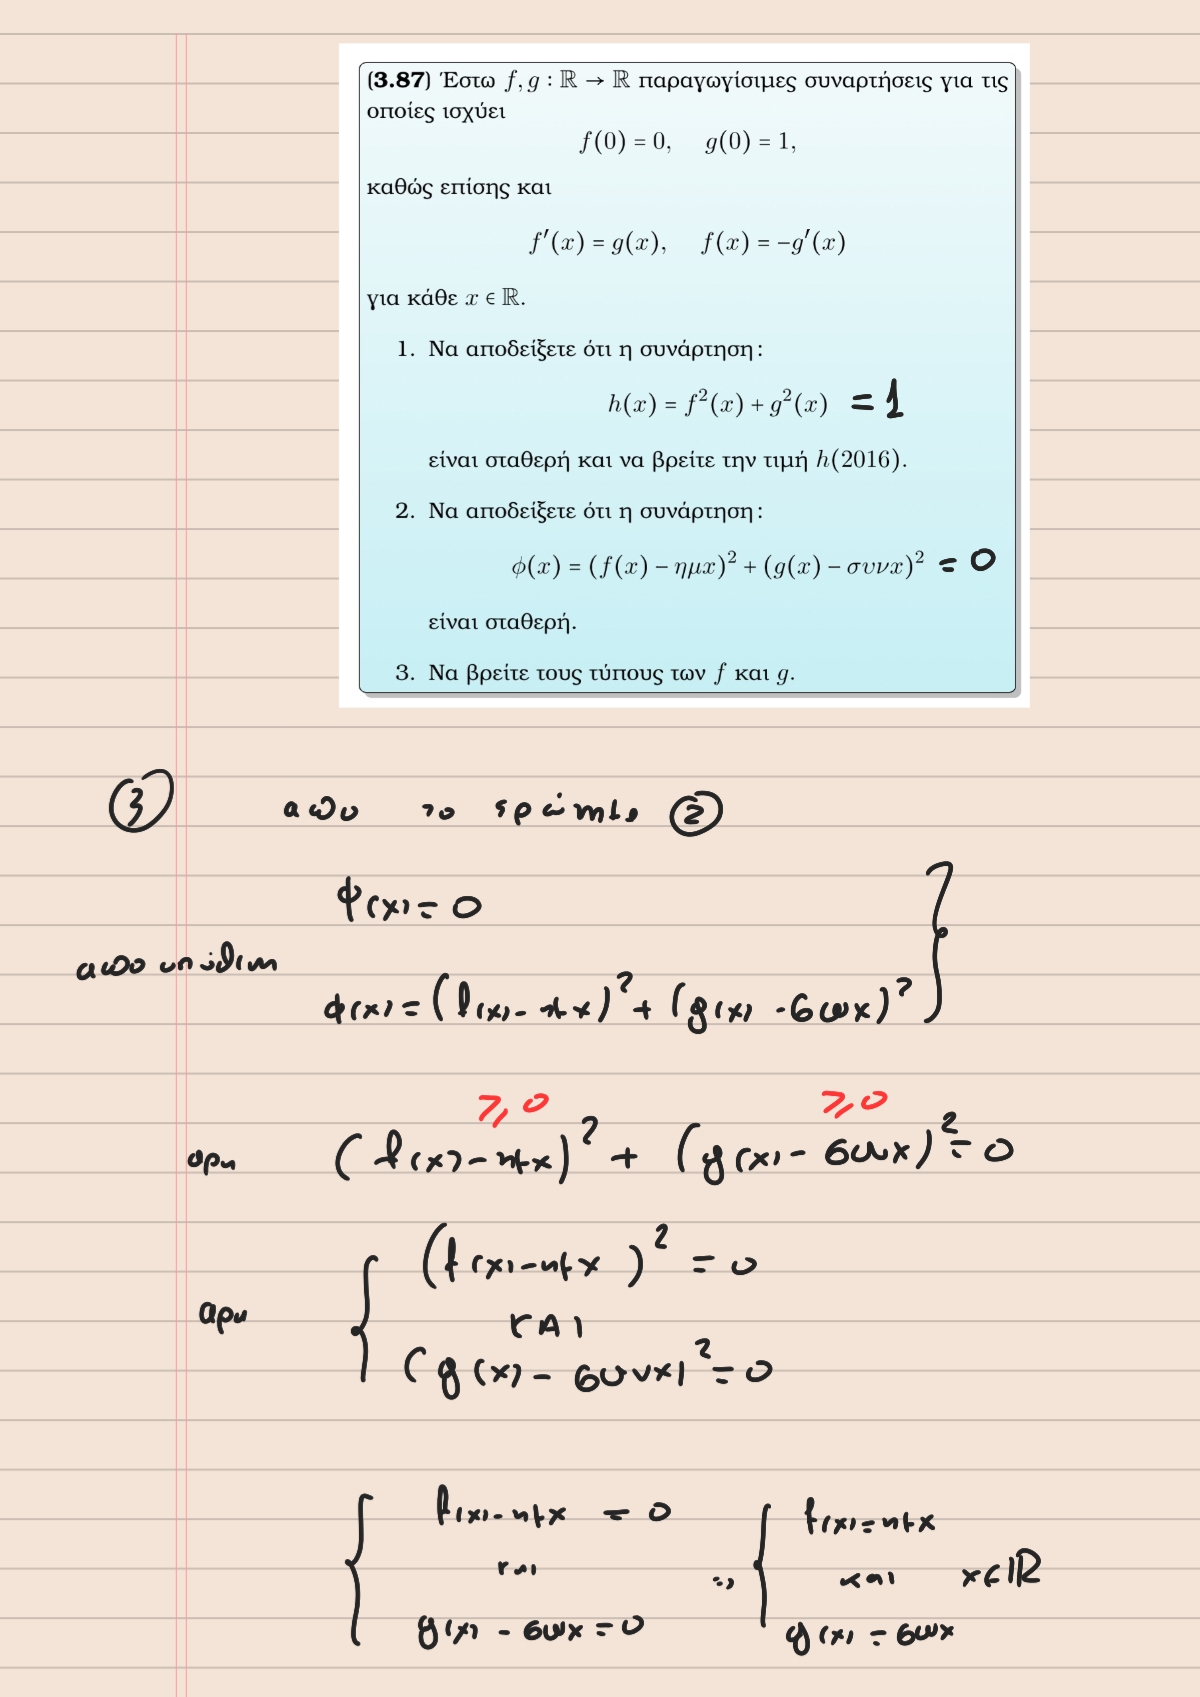 (3.87) Έστω f, g : ℝ → ℝ παραγωγίσιμες συναρτήσεις για τις
οποίες ισχύει
f(0) = 0, g(0) = 1,
καθώς επίσης και
f′(x) = g(x), f(x) = −g′(x)
για κάθε x ∈ ℝ.
1. Να αποδείξετε ότι η συνάρτηση:
h(x) = f²(x) + g²(x) = 1
είναι σταθερή και να βρείτε την τιμή h(2016).
2. Να αποδείξετε ότι η συνάρτηση:
ϕ(x) = (f(x) − ημx)² + (g(x) − συνx)² = 0
είναι σταθερή.
3. Να βρείτε τους τύπους των f και g.
③ απο το ερώτημα ②
ϕ(x) = 0
απο υπόθεση
ϕ(x) = (f(x) - ημx)² + (g(x) - συνx)²
≥0 ≥0
αρα (f(x) - ημx)² + (g(x) - συνx)² = 0
(f(x) - ημx)² = 0
αρα ΚΑΙ
(g(x) - συνx)² = 0
f(x) - ημx = 0 f(x) = ημx
και και x∈ℝ
g(x) - συνx = 0 g(x) = συνx